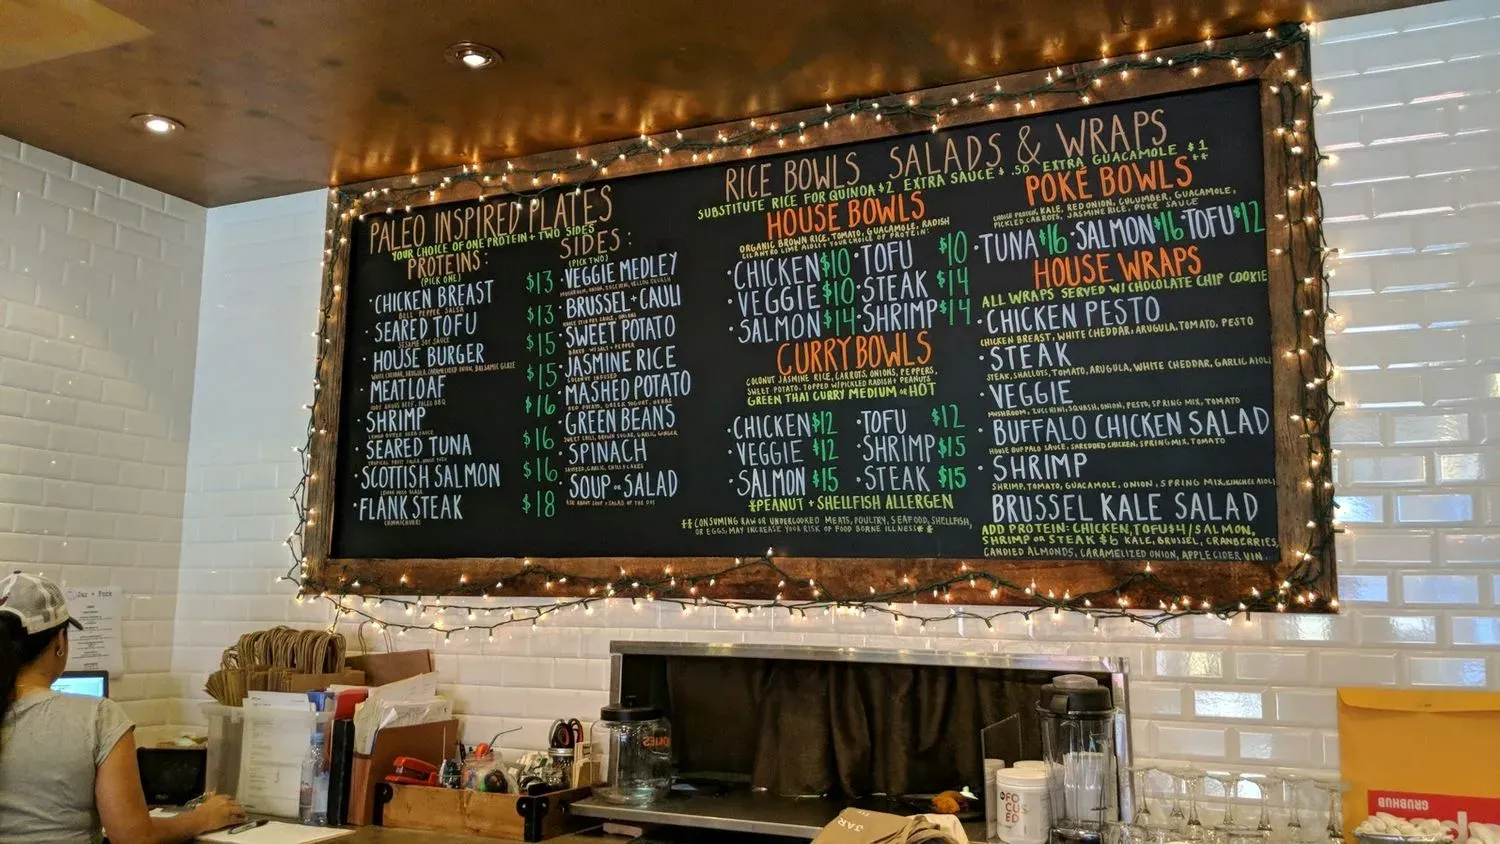 PALEO INSPIRED PLATES
YOUR CHOICE OF ONE PROTEIN + TWO SIDES
PROTEINS:
(PICK ONE)
CHICKEN BREAST $13
BELL PEPPER SALSA
SEARED TOFU $13
SESAME SOY SAUCE
HOUSE BURGER $15
WHITE CHEDDAR, ARUGULA, CARAMELIZED ONION, BALSAMIC GLAZE
MEATLOAF $15
100% ANGUS BEEF, PALEO BBQ
SHRIMP $16
SEARED TUNA $16
SCOTTISH SALMON $16
FLANK STEAK $18
CHIMICHURRI
SIDES:
(PICK TWO)
VEGGIE MEDLEY
MUSHROOM, ONION, ZUCCHINI, YELLOW SQUASH
BRUSSEL + CAULI
SWEET POTATO
BAKED W/ SALT + PEPPER
JASMINE RICE
COCONUT INFUSED
MASHED POTATO
RED POTATO, GREEK YOGURT, HERBS
GREEN BEANS
SWEET CHILI, BROWN SUGAR, GARLIC, GINGER
SPINACH
SOUP OR SALAD
ASK ABOUT SOUP + SALAD OF THE DAY
RICE BOWLS SALADS & WRAPS
SUBSTITUTE RICE FOR QUINOA $2 EXTRA SAUCE $ .50 EXTRA GUACAMOLE $1
HOUSE BOWLS
ORGANIC BROWN RICE, TOMATO, GUACAMOLE, RADISH
CILANTRO LIME AIOLI + YOUR CHOICE OF PROTEIN:
CHICKEN $10 TOFU $10
VEGGIE $10 STEAK $14
SALMON $14 SHRIMP $14
CURRY BOWLS
COCONUT JASMINE RICE, CARROTS, ONIONS, PEPPERS,
SWEET POTATO, TOPPED W/PICKLED RADISH + PEANUTS
GREEN THAI CURRY MEDIUM OR HOT
CHICKEN $12 TOFU $12
VEGGIE $12 SHRIMP $15
SALMON $15 STEAK $15
*PEANUT + SHELLFISH ALLERGEN
**CONSUMING RAW OR UNDERCOOKED MEATS, POULTRY, SEAFOOD, SHELLFISH,
OR EGGS, MAY INCREASE YOUR RISK OF FOOD BORNE ILLNESS**
POKÉ BOWLS**
CHOICE PROTEIN, KALE, RED ONION, CUCUMBER, GUACAMOLE,
PICKLED CARROTS, JASMINE RICE, POKE SAUCE
TUNA $16 SALMON $16 TOFU $12
HOUSE WRAPS
ALL WRAPS SERVED W/ CHOCOLATE CHIP COOKIE
CHICKEN PESTO
CHICKEN BREAST, WHITE CHEDDAR, ARUGULA, TOMATO, PESTO
STEAK
STEAK, SHALLOTS, TOMATO, ARUGULA, WHITE CHEDDAR, GARLIC AIOLI
VEGGIE
MUSHROOM, ZUCCHINI, SQUASH, ONION, PESTO, SPRING MIX, TOMATO
BUFFALO CHICKEN SALAD
HOUSE BUFFALO SAUCE, SHREDDED CHICKEN, SPRING MIX, TOMATO
SHRIMP
SHRIMP, TOMATO, GUACAMOLE, ONION, SPRING MIX, KIMCHEE AIOLI
BRUSSEL KALE SALAD
ADD PROTEIN: CHICKEN, TOFU $4 / SALMON,
SHRIMP OR STEAK $6 KALE, BRUSSEL, CRANBERRIES,
CANDIED ALMONDS, CARAMELIZED ONION, APPLE CIDER VIN
Jar + Fork
COOKIES
FOCUSED
JAR
GRUBHUB